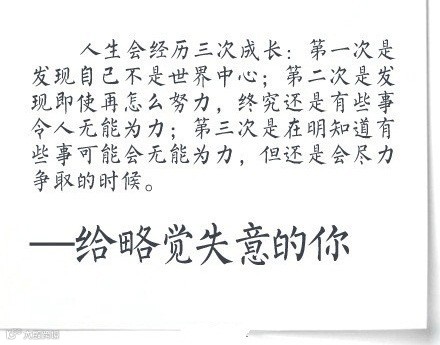 人生会经历三次成长：第一次是
发现自己不是世界中心；第二次是发
现即使再怎么努力，终究还是有些事
令人无能为力；第三次是在明知道有
些事可能会无能为力，但还是会尽力
争取的时候。
—给略觉失意的你